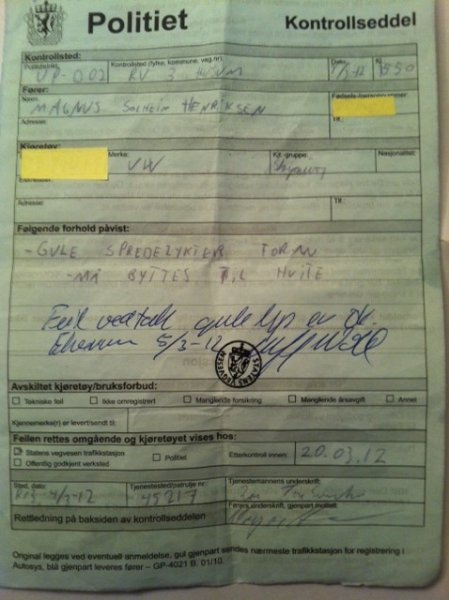 Politiet Kontrollseddel
Kontrollsted:
Politidistrikt Kontrollsted (fylke, kommune, veg.nr) Dato Kl.
UP-002 RV 3 1550
Fører:
Navn Fødsels-/personnummer
MAGNUS SOLHEIM HENRIKSEN
Adresse Tlf.
Kjøretøy
Merke: Kjt.-gruppe: Nasjonalitet:
VW
Adresse: Tlf.
Følgende forhold påvist:
-GULE SPREDELYKTER FORAN
-MÅ BYTTES TIL HVITE
Feil vedtak gule lys er ok.
5/3-12
STATENS VEGVESEN
Avskiltet kjøretøy/bruksforbud:
Tekniske feil Ikke omregistrert Manglende forsikring Manglende årsavgift Annet
Kjennemerke(r) er levert/sendt til:
Feilen rettes omgående og kjøretøyet vises hos:
Statens vegvesen trafikkstasjon Politiet Etterkontroll innen: 20.03.12
Offentlig godkjent verksted
Sted, dato: Tjenestested/patrulje nr.: Tjenestemannens underskrift:
45217
Førers underskrift, gjenpart mottatt:
Rettledning på baksiden av kontrollseddelen
Original legges ved eventuell anmeldelse, gul gjenpart sendes nærmeste trafikkstasjon for registrering i
Autosys, blå gjenpart leveres fører – GP-4021 B. 01/10.